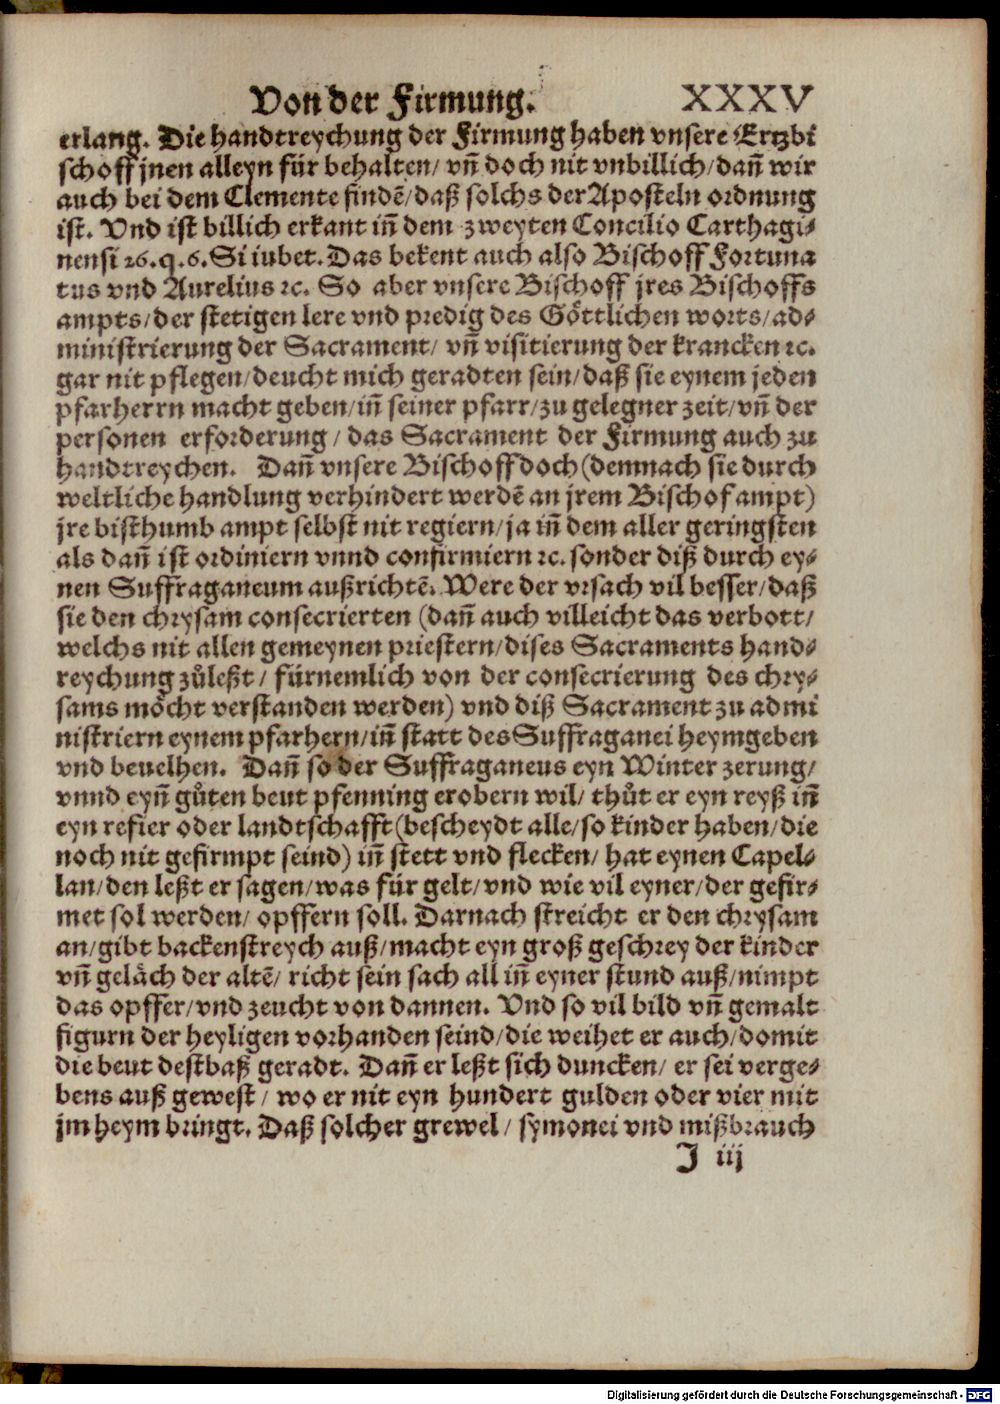 Von der Firmung. XXXV
erlang. Die handtreychung der Firmung haben vnsere Ertzbi
schoff jnen alleyn für behalten/ vñ doch nit vnbillich/dañ wir
auch bei dem Clemente findẽ/daß solchs der Aposteln ordnung
ist. Vnd ist billich erkant iñ dem zweyten Concilio Carthagi⸗
nensi 26.q.6.Si iubet. Das bekent auch also Bischoff Fortuna
tus vnd Aurelius ꝛc. So aber vnsere Bischoff jres Bischoffs
ampts/der stetigen lere vnd predig des Göttlichen worts/ad⸗
ministrierung der Sacrament/ vñ visitierung der krancken ꝛc.
gar nit pflegen/deucht mich geradten sein/daß sie eynem jeden
pfarherrn macht geben/iñ seiner pfarr/zu gelegner zeit/vñ der
personen erforderung/ das Sacrament der Firmung auch zu
handtreychen. Dañ vnsere Bischoff doch (demnach sie durch
weltliche handlung verhindert werdẽ an jrem Bischof ampt)
jre bisthumb ampt selbst nit regiern/ja iñ dem aller geringsten
als dañ ist ordiniern vnnd confirmiern ꝛc. sonder diß durch ey⸗
nen Suffraganeum außrichtẽ. Were der vrsach vil besser/daß
sie den chrysam consecrierten (dañ auch villeicht das verbott/
welchs nit allen gemeynen priestern/dises Sacraments hand⸗
reychung zůleßt/ fürnemlich von der consecrierung des chry⸗
sams möcht verstanden werden) vnd diß Sacrament zu admi
nistriern eynem pfarhern/iñ statt des Suffraganei heymgeben
vnd beuelhen. Dañ so der Suffraganeus eyn Winter zerung/
vnnd eyñ gůten beut pfenning erobern wil/ thůt er eyn reyß iñ
eyn refier oder landtschafft (bescheydt alle/so kinder haben/die
noch nit gefirmpt seind) iñ stett vnd flecken/ hat eynen Capel⸗
lan/den leßt er sagen/was für gelt/vnd wie vil eyner/der gefir⸗
met sol werden/ opffern soll. Darnach streicht er den chrysam
an/gibt backenstreych auß/macht eyn groß geschrey der kinder
vñ geläch der altẽ/ richt sein sach all iñ eyner stund auß/nimpt
das opffer/vnd zeucht von dannen. Vnd so vil bild vñ gemalt
figurn der heyligen vorhanden seind/die weihet er auch/domit
die beut destbaß geradt. Dañ er leßt sich duncken/ er sei verge⸗
bens auß gewest/ wo er nit eyn hundert gulden oder vier mit
jm heym bringt. Daß solcher grewel/ symonei vnd mißbrauch
J iij
Digitalisierung gefördert durch die Deutsche Forschungsgemeinschaft - DFG